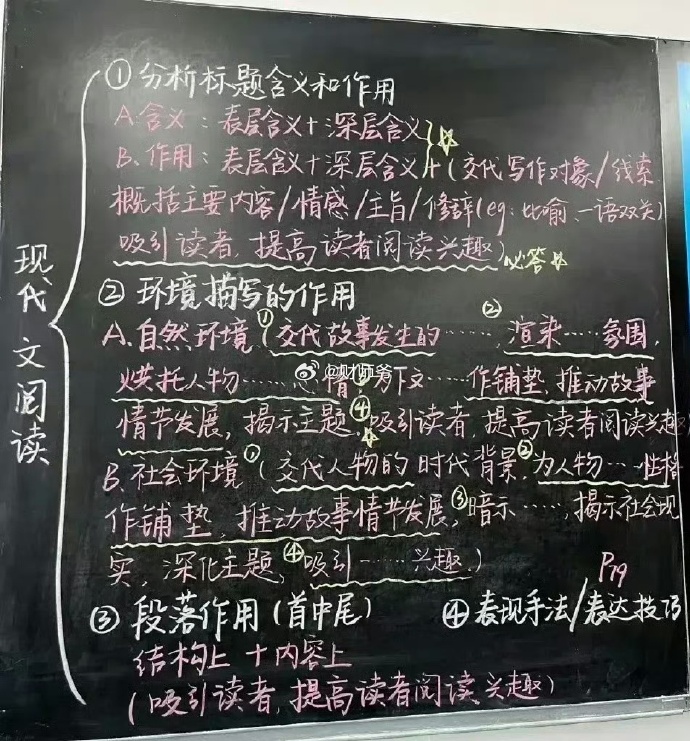 现代文阅读
①分析标题含义和作用
A.含义：表层含义+深层含义
B.作用：表层含义+深层含义+(交代写作对象/线索
概括主要内容/情感/主旨/修辞(eg:比喻、一语双关)
吸引读者,提高读者阅读兴趣) 必答
②环境描写的作用
A.自然环境(①交代故事发生的……,②渲染……氛围,
烘托人物……情 为下文……作铺垫,推动故事
情节发展,揭示主题④吸引读者,提高读者阅读兴趣
B.社会环境①(交代人物的时代背景,②为人物……性格
作铺垫,推动故事情节发展,③暗示……,揭示社会现
实,深化主题,④吸引……兴趣.)
③段落作用(首中尾)
结构上+内容上
(吸引读者,提高读者阅读兴趣)
P79
④表现手法/表达技巧